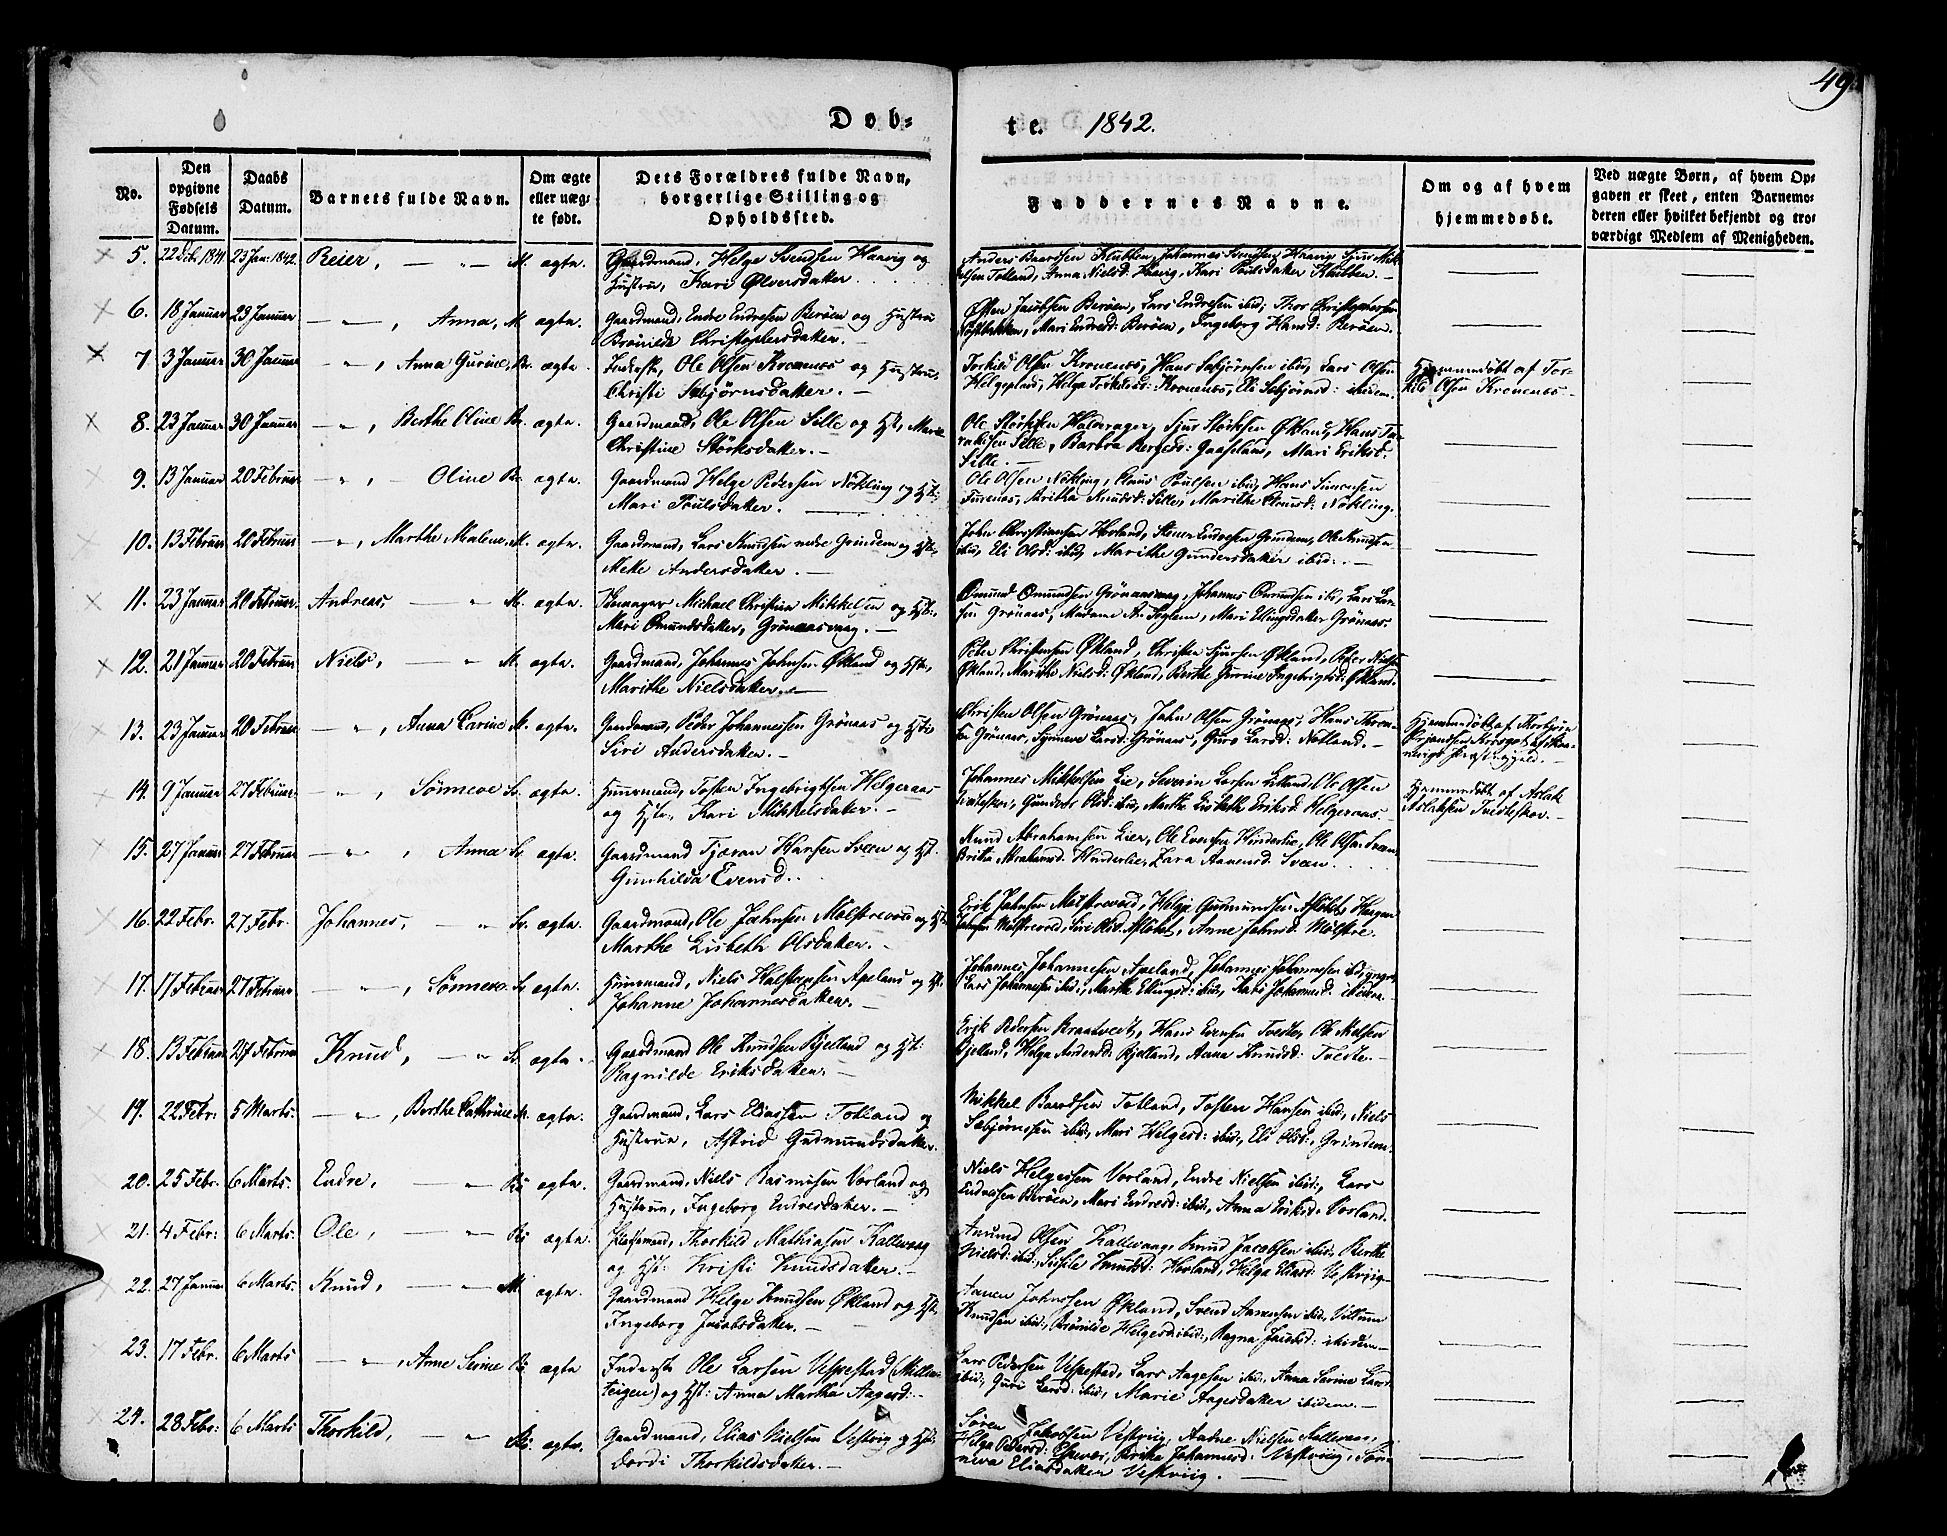 49
Døb-
te. 1842.
No.
Den opgivne Fødsels Datum.
Daabs Datum.
Barnets fulde Navn.
Om ægte eller uægte født.
Dets Forældres fulde Navn, borgerlige Stilling og Opholdssted.
Faddernes Navne.
Om og af hvem hjemmedøbt.
Ved uægte Børn, af hvem Opgaven er skeet, enten Barnemoderen eller hvilket bekjendt og troværdigt Medlem af Menigheden.
5. 22 Dcb. 1841 23 Jan: 1842. Reier, — „ — M. ægte. Gaardmand, Helge Svendsen Haavig og
Hustru, Kari Ølversdatter.
Anders Baardsen Klubben, Johannes Svendsen Haavig, Sjur Mik-
kelsen Totland, Anna Nielsd: Haavig, Kari Poulsdatter Klubben. —
6. 18 Januar 23 Januar — „ —, Anna, M. ægte. Gaardmand, Endre Endresen Berøen og Hustru
Brønilde Christophersdatter. —
Østen Jacobsen Berøen, Lars Endresen ibid: Thor Christophersen
Mari Endresd: Berøen, Ingeborg Hansd: Berøen.
7 3 Januar 30 Januar — „, Anna Gurine, ægte. Inderste, Ole Olsen Kronenes og Hustru,
Christi Sebjørnsdatter. —
Torkild Olsen Kronenes, Hans Sebjørnsen ibid, Lars Olsen
Helgeland, Helga Torkildsd: Kronenes, Eli Sebjørnsd: ibidem.
Hjemmedøbt af Tor-
kild Olsen Kronenes —
8. 23 Januar 30 Januar — „, Berthe Oline ægte. Gaardmand, Ole Olsen Sille og Hst, Marie
Christine Størksdatter. —
Ole Størksen Halvrager, Sjur Størksen Økland, Hans
Sille, Barbra Bergesd: Mari Eriksd:
Sille. —
9. 13 Januar 20 Februar — „, — Oline ægte. Gaardmand Helge Pedersen Nøkling og Hst:
Mari Poulsdatter. —
Ole Olsen Nøkling, Claus Poulsen ibid, Hans Simonsen
Britha Knudsd: Sille, Marithe Nøkling.
10. 13 Februar 20 Februar — „, Marthe Malene, M. ægte. Gaardmand, Lars Knudsen nedre Grindem og Hst:,
Meke Andersdatter. —
John Christiansen Hovland, Stener Endresen Grindem, Ole Knudsen
ibid, Eli Olsd: ibid, Marithe Gundersdatter ibid. —
11. 23 Januar 20 Februar. Andreas, — „ M. ægte. Michael Christian Mikkelsen og Hst:,
Mari Omundsdatter, Grønaasvaag. —
Omund Omundsen Grønaasvaag, Johannes Omundsen ibid, Lars Lar-
sen Grønaas, Madame An. Seglem, Mari Ellingsdatter Grønaas.
12. 21 Januar 20 Februar Niels, — „ M. ægte. Gaardmand, Johannes Johnsen Økland og Hst:,
Marithe Nielsdatter. —
Peder Christensen Økland, Christen Sjursen Økland, Peder Nielsen
Økland, Marithe Nielsd: Økland, Berthe Gurine Ingebrigtsd: Økland.
13. 23 Januar 20 Februar — „, Anna Carine M. ægte. Gaardmand, Peder Johannessen Grønaas og Hstr
Siri Andersdatter. —
Christen Olsen Grønaas, John Olsen Grønaas, Hans
Grønaas, Synneve Larsd: Grønaas, Guro Larsd: Notland. —
Hjemmedøbt af Thorbjørn
Ørjandsen af Ska-
nevigs Præstegjeld. —
14. 9 Januar 27 Februar. — „, Sønneve Sv. ægte. Huusmand, Tosten Ingebrigtsen Helgeraas
og Hstr, Kari Mikkelsdatter. —
Johannes Mikkelsen Lie, Severin Larsen Ole Olsen
Tvedteskov, Gunderi Olsd: ibid, Marthe Lisbeth Eriksd: Helgeraas
Hjemmedøbt af Aslak
Aslaksen Tvedteskov. —
15. 27 Januar 27 Februar — „, Anna Sv. ægte. Gaardmand Tjæran Hansen Sveen og Hst.
Gunhilda Evensd.
Knud Abrahamsen Lier, Ole Evensen Hinderlie, Ole Olsen Sveen,
Britha Abrahamsd: Hinderlie, Zara Aanensd: Sveen.
16. 22 Febr. 27 Febr. Johannes, — „ Sv. ægte. Gaardmand, Ole Johnsen Mølstrevold og Hst:
Marthe Lisbeth Olsdatter. —
Erik Johnsen Mølstrevold, Helge Gudmundsen Asløkt, Haagen
Johnsen Mølstrevold, Siri Olsd. Asløkt, Anne Johnsd. Mølstre.
17. 17 Februar 27 Februar — „, Sønneva. Sv. ægte. Huusmand, Niels Halstensen Apeland og Hst:
Johanne Johannesdatter. —
Johannes Johannesen Apeland, Johannes Johannesen ibid, yngre,
Lars Johannesen ibid:, Marthe Ellingsd: ibid, Kari Johannesd: ibidem.
18. 13 Februar 27 Februar Knud, — „ Sv. ægte. Gaardmand Ole Knudsen Bjelland og Hst:
Ragnilde Eriksdatter. —
Erik Pedersen Kraatvedt, Hans Evensen Tvedte, Ole Nielsen
Bjelland, Helga Andersd: Bjelland, Anna Knudsd: Tvedte. —
19. 22 Febr: 5 Marts: — „, Berthe Cathrine M. ægte. Gaardmand, Lars Eliassen Totland og
Hustrue, Astrid Gudmundsdatter.
Mikkel Baardsen Totland, Tosten Hansen ibid, Niels
Sebjørnssen ibid:, Mari Helgesd: ibid, Eli Olsd:, Grindem.
20. 25 Febr. 6 Marts. Endre, — „ ægte. Gaardmand, Niels Rasmusen Vorland og
Hustrue, Ingeborg Endresdatter. —
Niels Helgessen Vorland, Endre Nielsen ibid:, Lars
Endressen Berøen, Mari Endresd: ibid:, Anna Eriksd: Vorland.
21. 4 Febr: 6 Marts: Ole, — „ ægte. Pladsmand, Thorkild Mathiasen Kallevaag
og Hst: Kristi Knudsdatter. —
Amund Olsen Kallevaag, Knud Jacobsen ibid, Berthe
Nielsd: ibid:, Sissele Knudsd: Hovland, Helga Eliasd: Vestviig —
22. 27 Januar 6 Marts. Knud, — „ M. ægte. Gaardmand Helge Knudsen Økland og Hst:,
Ingeborg Jacobsdatter. —
Aanen Johnssen Økland, Svend Aanensen ibid, Villum
Knudsen ibid:, Brønilde Helgesd ibid:, Ragna Jacobsd: ibidem —
23. 17 Febr. 6 Marts — „, Anne Serine ægte Inderste Ole Larsen Vespestad (Mille-
teigen) og Hst: Anna Martha Aagesd: —
Lars Pedersen Vespestad, Lars Aagesen ibid, Anna Sarine Larsd:
ibid, Guri Larsd: ibid, Marie Aagesdatter ibidem. —
24. 28 Febr: 6 Marts Thorkild, — „ ægte. Gaardmand, Elias Nielsen Vestvig og Hst:
Dordi Thorkildsdatter. —
Søren Jacobsen Vestviig, Aadne Nielsen Kallevaag,
Helga Pedersd: Espevær, Britha Johannesd: Vestviig, Søn-
neva Eliasdatter Vestviig. —